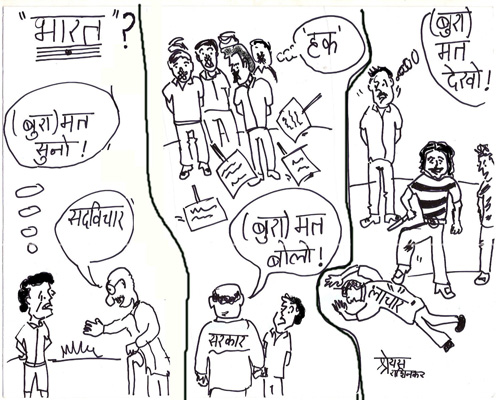 "भारत" ?
(बुरा) मत
सुनो !
सदविचार
'हक'
(बुरा) मत
बोलो !
सरकार
(बुरा)
मत
देखो !
"लाचार"
प्रेयस